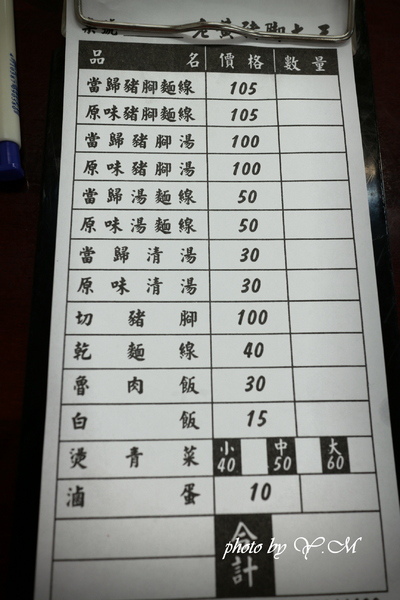 老黃豬腳大王
品名 價格 數量
當歸豬腳麵線 105
原味豬腳麵線 105
當歸豬腳湯 100
原味豬腳湯 100
當歸湯麵線 50
原味湯麵線 50
當歸清湯 30
原味清湯 30
切豬腳 100
乾麵線 40
魯肉飯 30
白飯 15
燙青菜 小40 中50 大60
滷蛋 10
合計
photo by Y.M